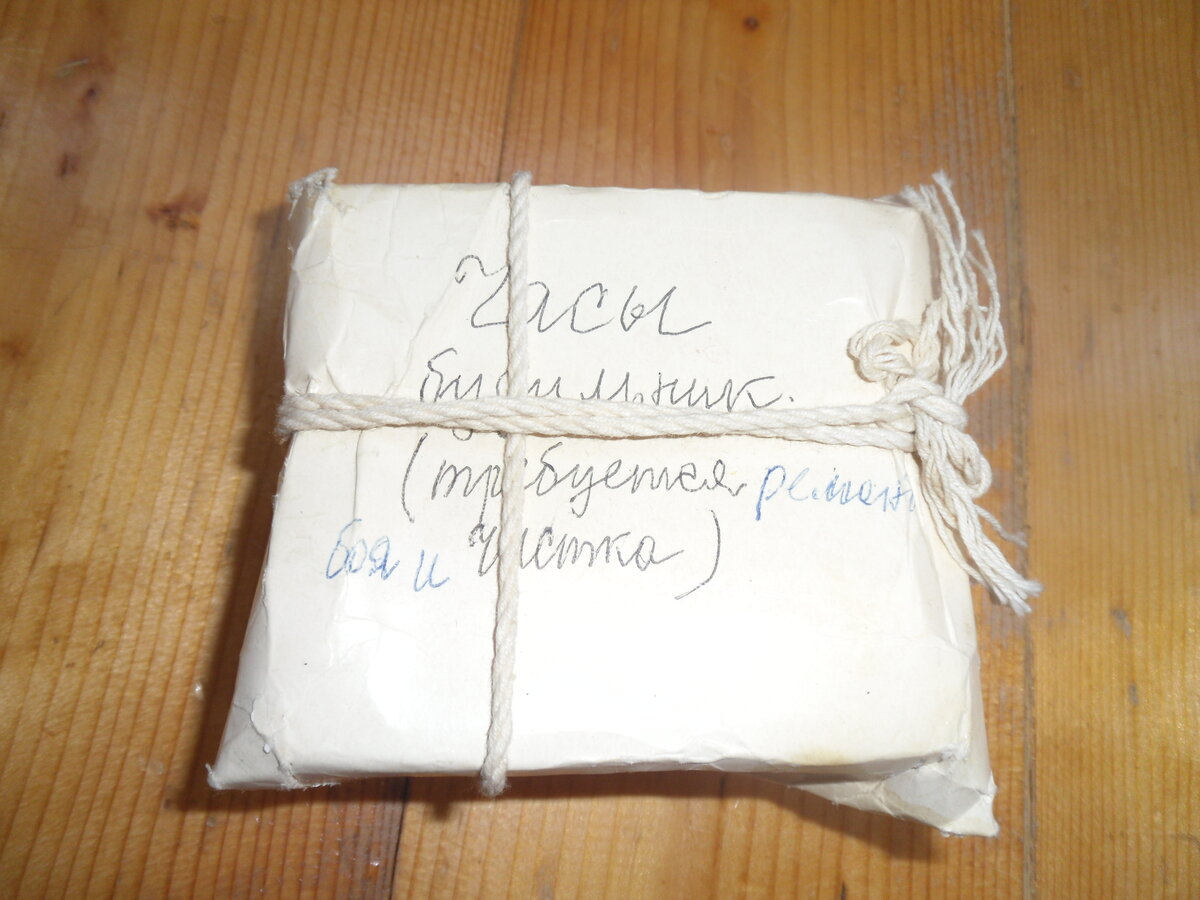 Часы
будильник.
(требуется ремонт
боя и чистка)